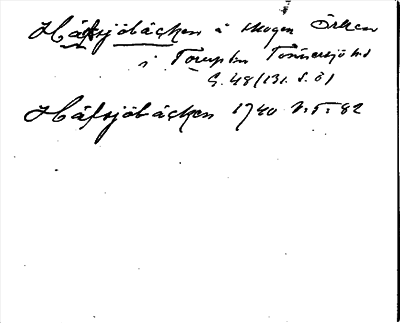 Håfsjöbäcken å skogen Örken
i Toruplm Tönnersjö hd
G. 48 (131. S. 81
Håfsjöbäcken 1740 N.T. 82